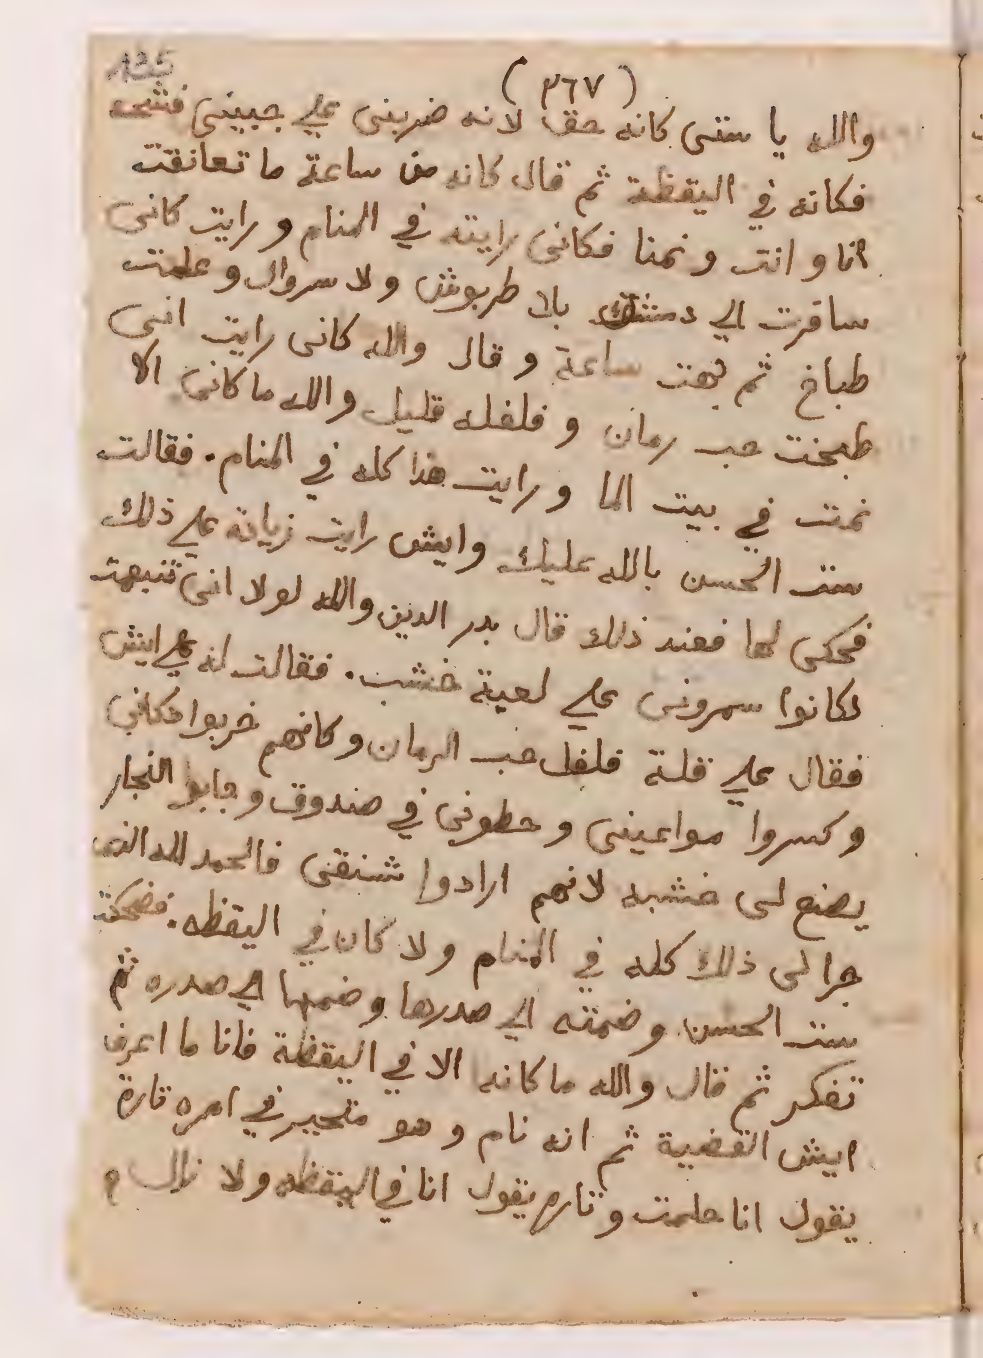 135
( ٣٦٧ )
والله يا ستى كانه حق لانه ضربنى على جبينى فشجه
فكانه في اليقظة ثم قال كانه من ساعة ما تعانقت
انا و انت و نمنا فكانى رايته في المنام و رايت كانى
سافرت الى دمشق بلا طربوش ولا سروال و علمت
طباخ ثم بهت ساعة و قال والله كانى رايت انى
طبخت حب رمان و فلفله قليل والله ما كانى الا
نمت في بيت الما و رايت هذا كله في المنام . فقالت
ست الحسن بالله عليك وايش رايت زيادة على ذلك
فحكى لها فعند ذلك قال بدر الدين والله لولا انى تنبهت
لكانوا سمرونى على لعبة خشب . فقالت له على ايش
فقال على قلة فلفل حب الرمان وكانهم خربوا دكانى
وكسروا مواعينى و حطونى في صندوق وجابوا النجار
يصنع لى خشبه لانهم ارادوا شنقى فالحمد لله الذى
جرا لى ذلك كله في المنام ولا كان في اليقظه . فضحكت
ست الحسن وضمته الى صدرها وضمها الى صدره ثم
تفكر ثم قال والله ما كانه الا في اليقظة فانا ما اعرف
ايش القضية ثم انه نام و هو متحير في امره تارة
يقول انا حلمت وتاره يقول انا في اليقظه ولا زال